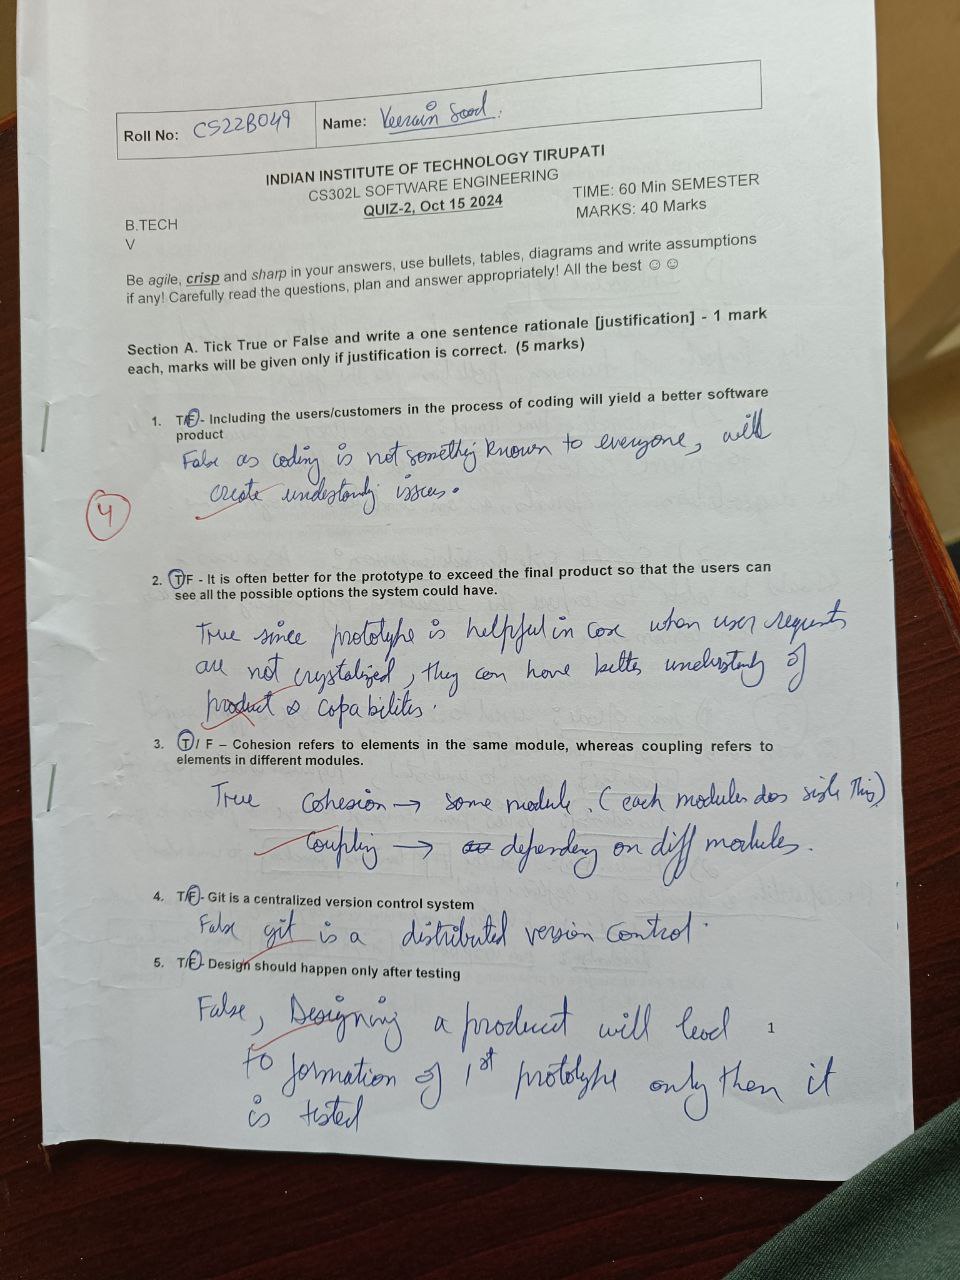 Roll No: CS22B049 Name: Veerain Sood.
INDIAN INSTITUTE OF TECHNOLOGY TIRUPATI
CS302L SOFTWARE ENGINEERING
QUIZ-2, Oct 15 2024
TIME: 60 Min SEMESTER
MARKS: 40 Marks
B.TECH
V
Be agile, crisp and sharp in your answers, use bullets, tables, diagrams and write assumptions
if any! Carefully read the questions, plan and answer appropriately! All the best ☺ ☺
Section A. Tick True or False and write a one sentence rationale [justification] - 1 mark
each, marks will be given only if justification is correct. (5 marks)
1. T/F - Including the users/customers in the process of coding will yield a better software
product
False as coding is not something known to everyone, will
create understandy issues.
4
2. T/F - It is often better for the prototype to exceed the final product so that the users can
see all the possible options the system could have.
True since prototype is helpful in case when user requests
are not crystalized, they can have better understandy of
product & capabilities.
3. T/ F – Cohesion refers to elements in the same module, whereas coupling refers to
elements in different modules.
True Cohesion → same module. (each module does single thing)
Coupling → dependency on diff modules.
4. T/F - Git is a centralized version control system
False git is a distributed version control.
5. T/F- Design should happen only after testing
False, Designing a product will lead
to formation of 1st prototype only then it
is tested
1